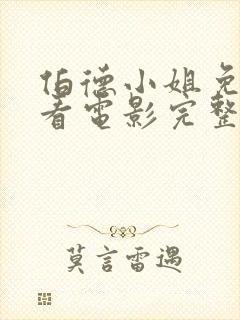 伯德小姐免
看电影完整
莫言雷遇